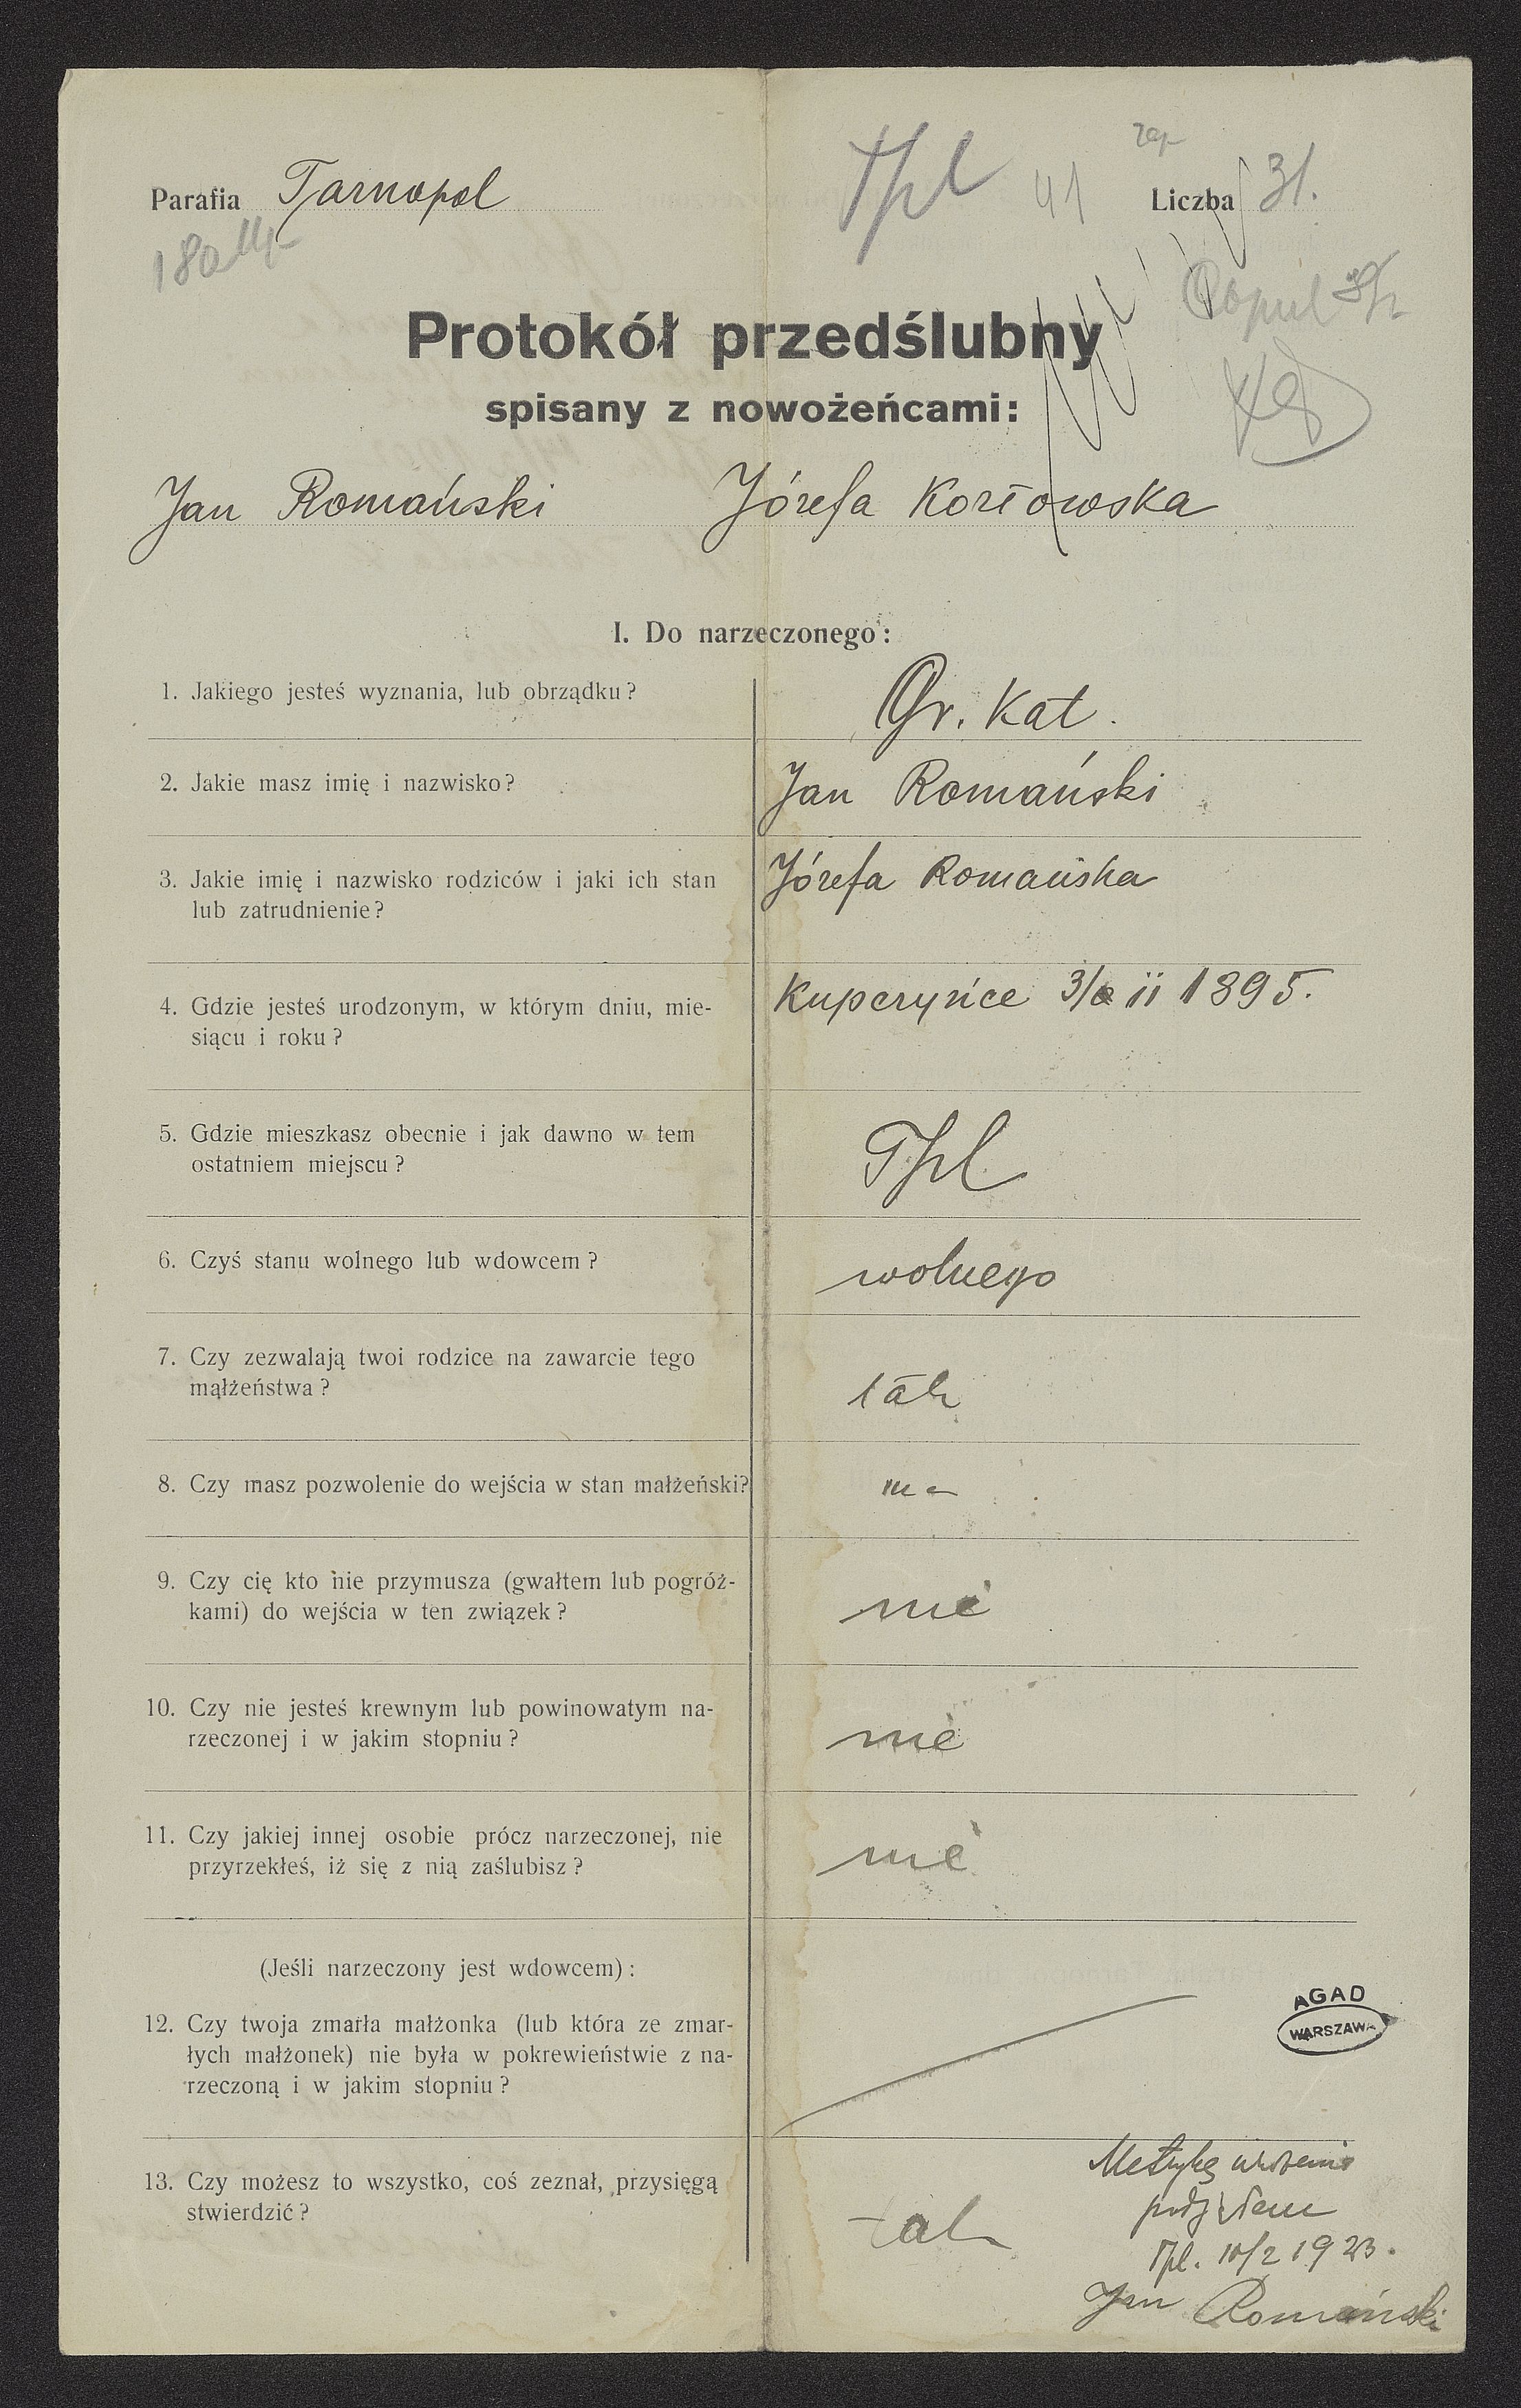 Parafia Tarnopol
Tpl 41 Liczba 31.
180
Protokół przedślubny
spisany z nowożeńcami:
Jan Romański Józefa Kozłowska
I. Do narzeczonego:
1. Jakiego jesteś wyznania, lub obrządku?
Gr. Kat.
2. Jakie masz imię i nazwisko?
Jan Romański
3. Jakie imię i nazwisko rodziców i jaki ich stan
lub zatrudnienie?
Józefa Romańska
4. Gdzie jesteś urodzonym, w którym dniu, mie-
siącu i roku?
Kupczyńce 3/ii 1895.
5. Gdzie mieszkasz obecnie i jak dawno w tem
ostatniem miejscu?
Tpl
6. Czyś stanu wolnego lub wdowcem?
wolnego
7. Czy zezwalają twoi rodzice na zawarcie tego
małżeństwa?
tak
8. Czy masz pozwolenie do wejścia w stan małżeński?
ma
9. Czy cię kto nie przymusza (gwałtem lub pogróż-
kami) do wejścia w ten związek?
nie
10. Czy nie jesteś krewnym lub powinowatym na-
rzeczonej i w jakim stopniu?
nie
11. Czy jakiej innej osobie prócz narzeczonej, nie
przyrzekłeś, iż się z nią zaślubisz?
nie
(Jeśli narzeczony jest wdowcem):
12. Czy twoja zmarła małżonka (lub która ze zmar-
łych małżonek) nie była w pokrewieństwie z na-
rzeczoną i w jakim stopniu?
AGAD
WARSZAWA
13. Czy możesz to wszystko, coś zeznał, przysięgą
stwierdzić?
tak
Metrykę urodzenia
podjąłem
Tpl. 10/2 1923.
Jan Romański